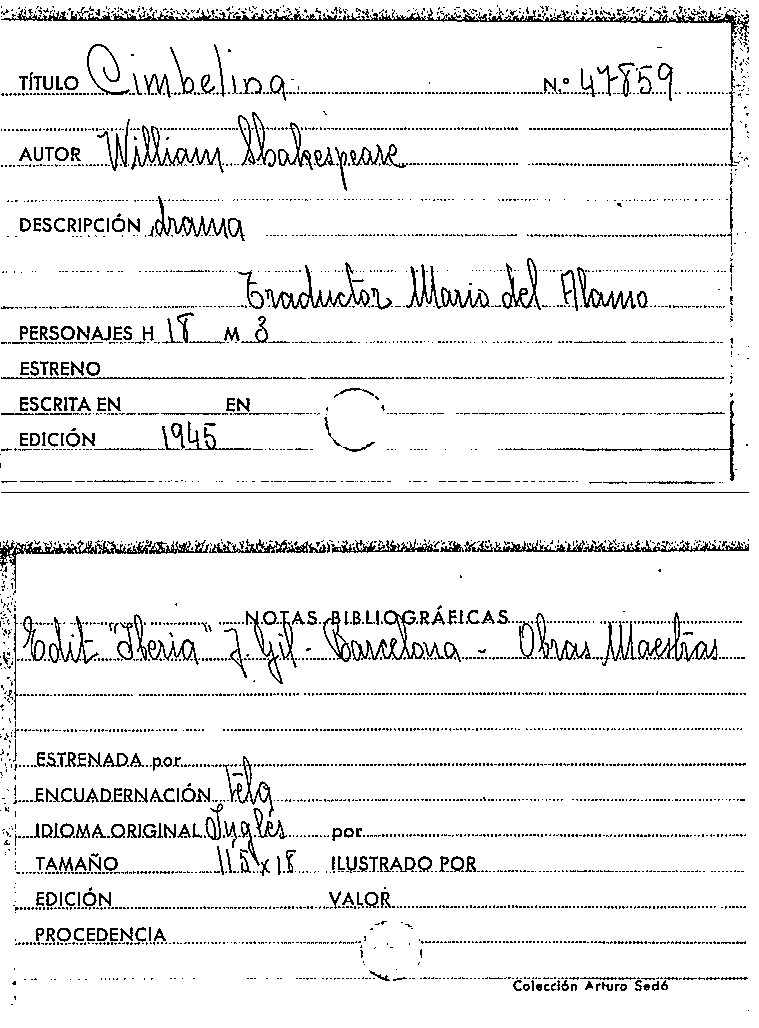 TÍTULO Cimbelina N.º 47859
AUTOR William Shakespeare
DESCRIPCIÓN drama
Traductor Mario del Alamo
PERSONAJES H 18 M 3
ESTRENO
ESCRITA EN EN
EDICIÓN 1945
NOTAS BIBLIOGRÁFICAS
Edit "Iberia" J. Gil - Barcelona - Obras Maestras
ESTRENADA por
ENCUADERNACIÓN tela
IDIOMA ORIGINAL Inglés por
TAMAÑO 11'5 x 18 ILUSTRADO POR
EDICIÓN VALOR
PROCEDENCIA
Colección Arturo Sedó